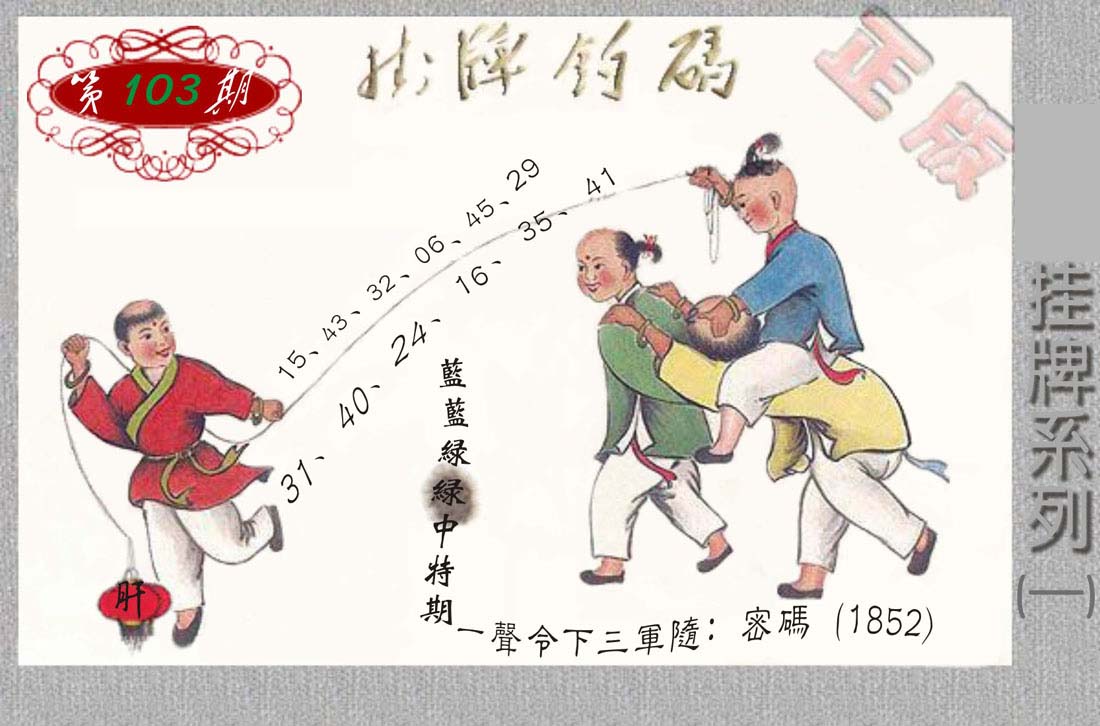 第 103 期
掛牌釣碼
正版
15、43、32、06、45、29
31、40、24、16、35、41
藍藍緑緑中特期
一聲令下三軍隨：密碼（1852）
肝
挂牌系列(一)